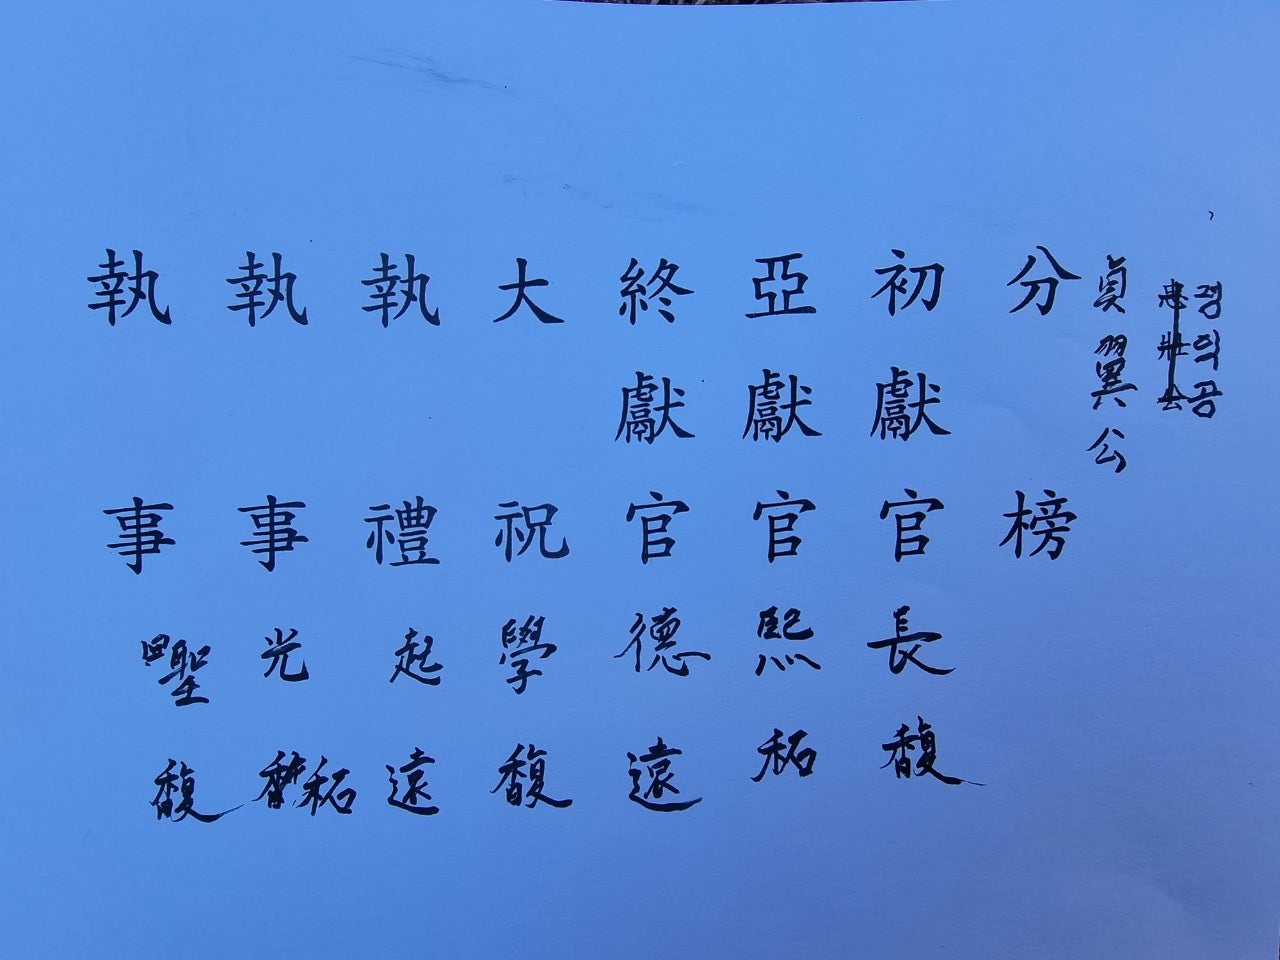 정익공
忠壯公
貞翼公
分榜
初獻官 長馥
亞獻官 熙祏
終獻官 德遠
大祝 學馥
執禮 起遠
執事 光祏
執事 聖馥